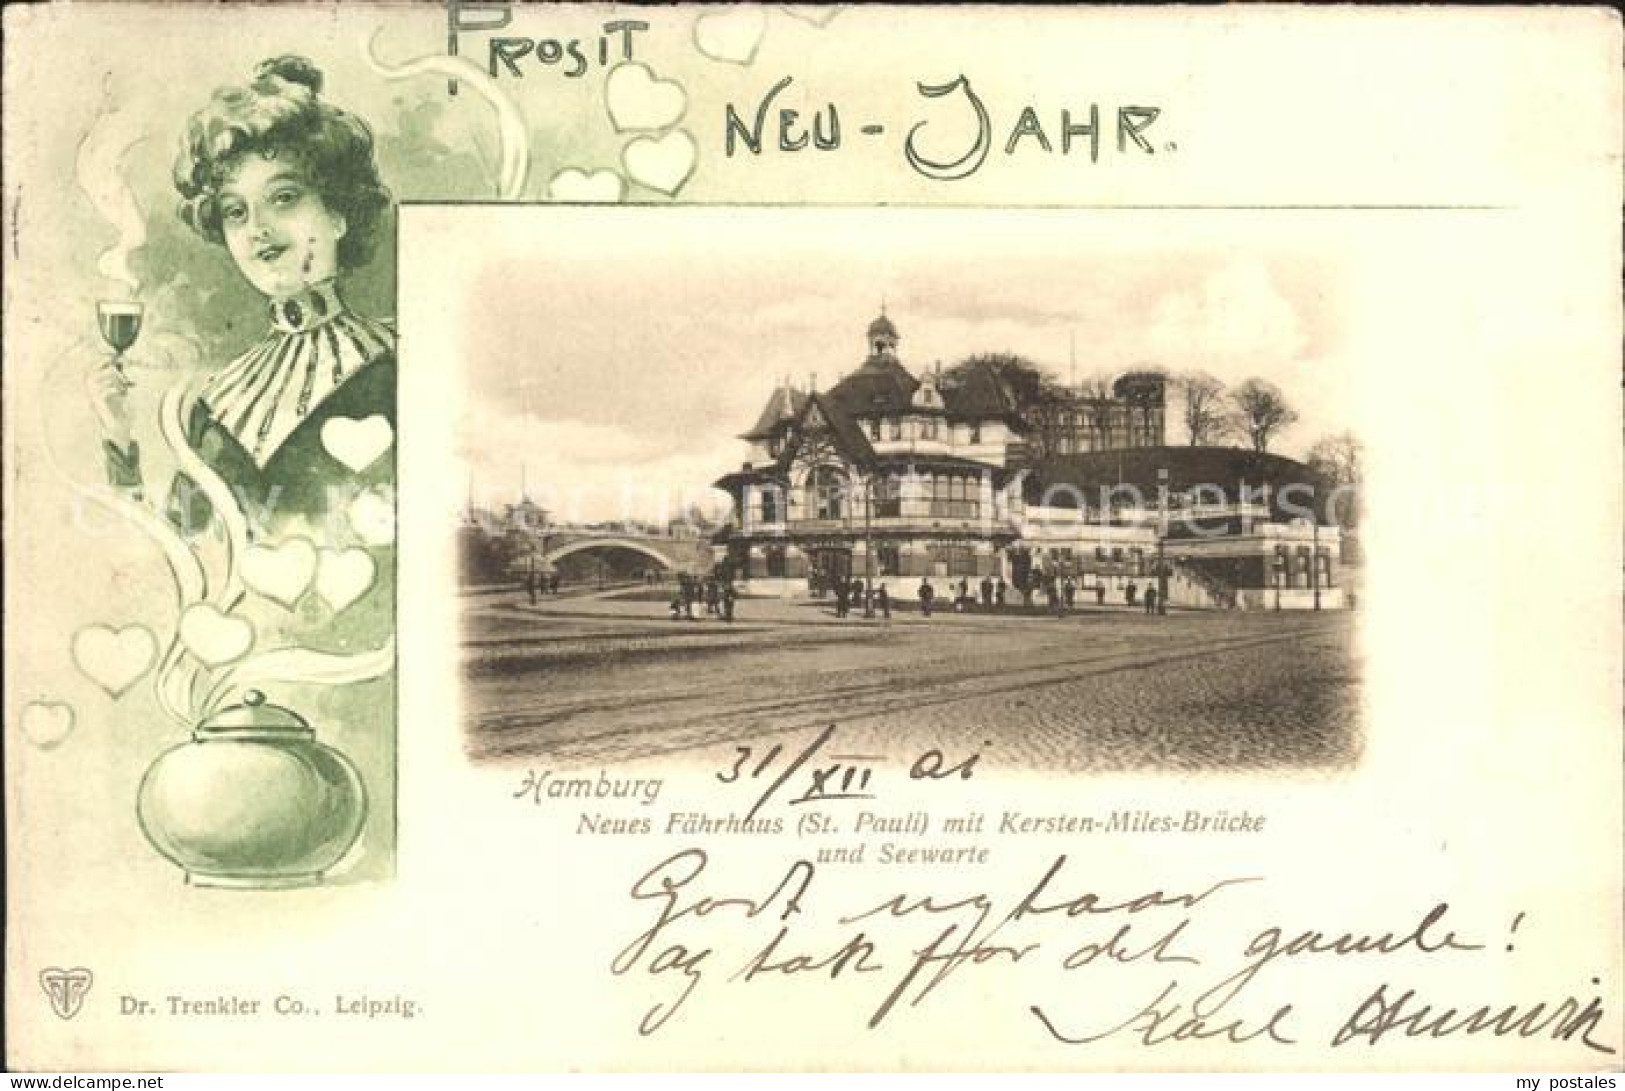 PROSIT
NEU-JAHR.
Hamburg 31/XII 01
Neues Fährhaus (St. Pauli) mit Kersten-Miles-Brücke
und Seewarte
Godt nytaar
og tak for det gamle!
Karl
Dr. Trenkler Co., Leipzig.
my postales